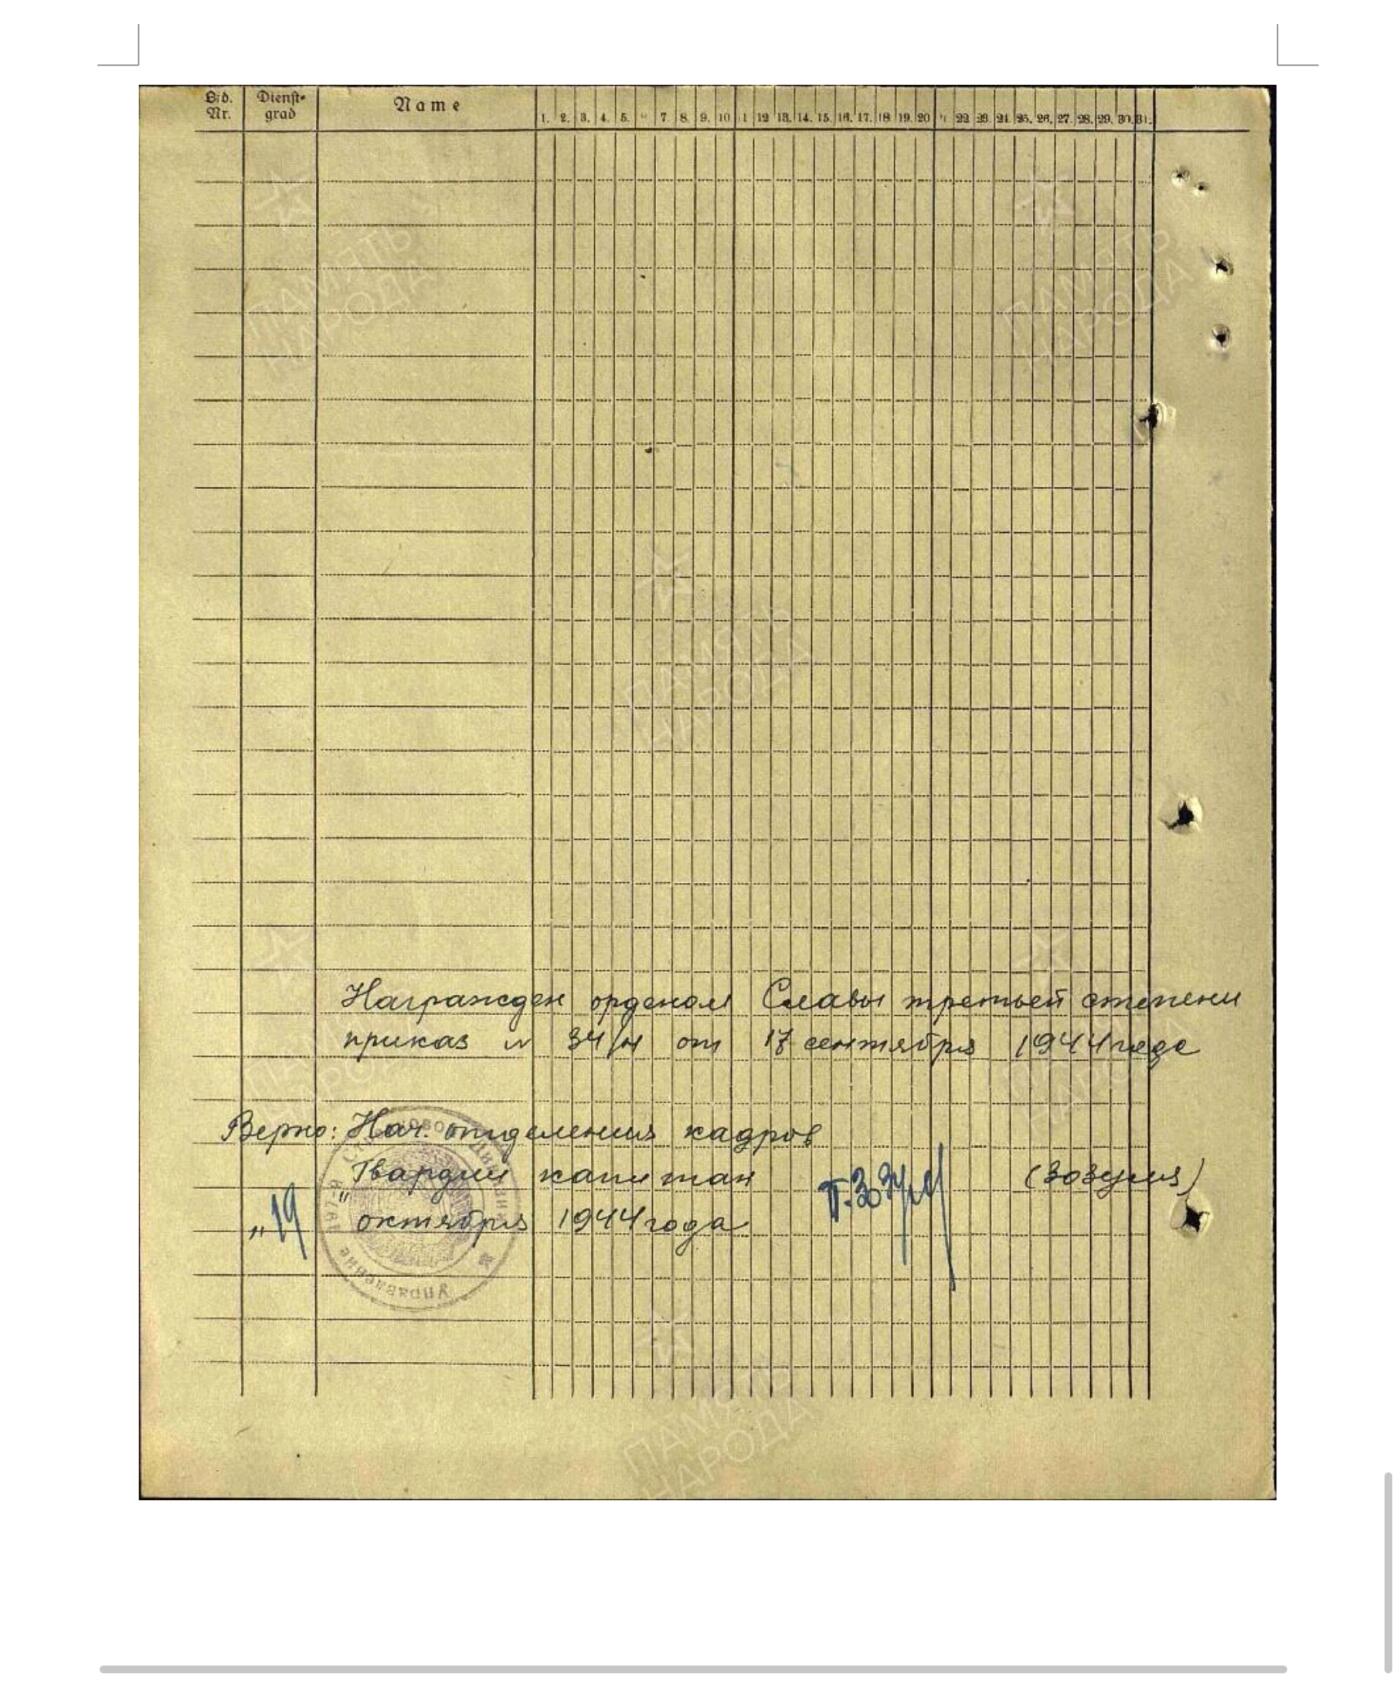 Lfd. Nr.
Dienst-
grad
Name
1. 2. 3. 4. 5. 7. 8. 9. 10 1 12 13. 14. 15. 16. 17. 18 19. 20 22 23. 24. 25. 26. 27. 28. 29. 30. 31.
ПАМЯТЬ
НАРОДА
ПАМЯТЬ
НАРОДА
ПАМЯТЬ
НАРОДА
Награжден орденом Славы третьей степени
приказ № 34/н от 17 сентября 1944 года
Верно: Нач. отделения кадров
Гвардии капитан П. Зозуля (Зозуля)
„19" октября 1944 года
Управление
ПАМЯТЬ
НАРОДА